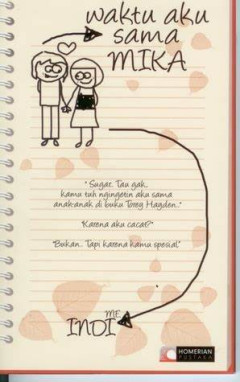 waktu aku
sama
MIKA
"Sugar.. Tau gak..
kamu tuh ngingetin aku sama
anak-anak di buku Torey Hayden.."
"Karena aku cacat?"
"Bukan.. Tapi karena kamu spesial"
ME
INDI
HOMERIAN
PUSTAKA